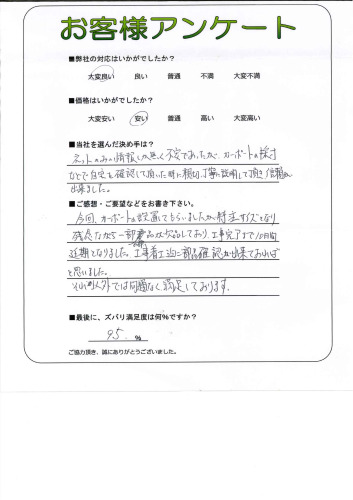 お客様アンケート
■弊社の対応はいかがでしたか?
大変良い 良い 普通 不満 大変不満
■価格はいかがでしたか?
大変安い 安い 普通 高い 大変高い
■当社を選んだ決め手は?
ネットのみの情報しか無く不安であったが、カーポートの採寸
などで自宅を確認して頂いた時に親切、丁寧に説明して頂き信頼
出来ました。
■ご感想・ご要望などをお書き下さい。
今回、カーポートの設置でもらいましたが特注サイズとなり
残念ながら一部部品が欠品しており、工事完了まで10日間
延期となりました。工事着工前に部品確認が出来ておればと
と思いました。
それ以外では問題なく満足しております。
■最後に、ズバリ満足度は何%ですか?
95 %
ご協力頂き、誠にありがとうございました。